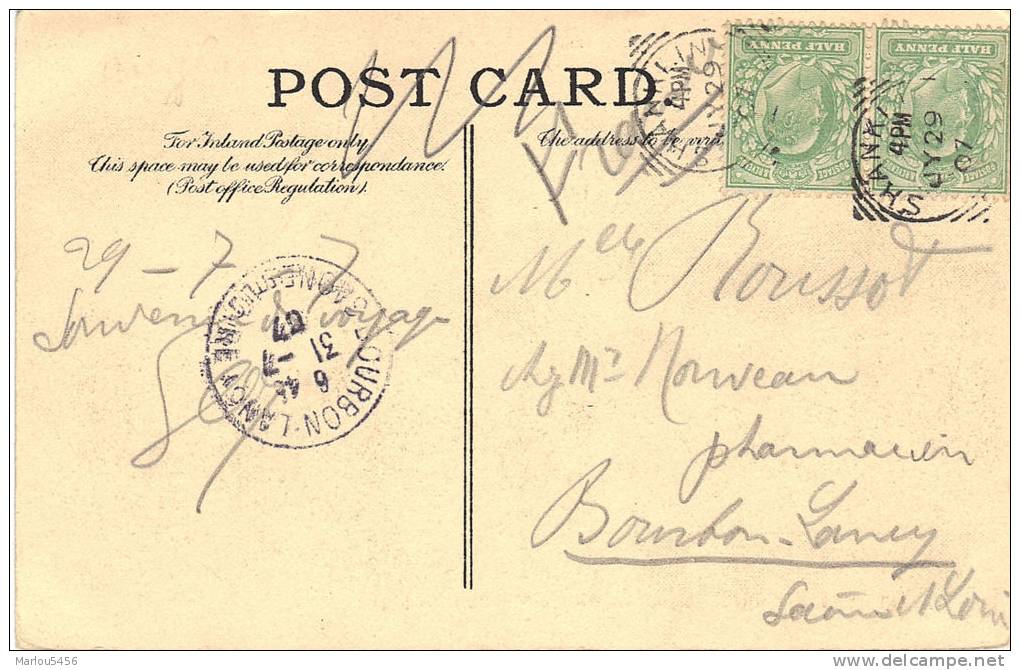 POST CARD
For Inland Postage only
This space may be used for correspondance.
(Post office Regulation).
The address to be
HALF PENNY
HALF PENNY
SHANKLIN
4PM
JY 29
07
SHANKLIN
4PM
JY 29
07
29 - 7 - 7
Souvenir de voyage
BOURBON-LANCY
SAONE-ET-LOIRE
6
31
-7
07
Melle Roussot
Mr Nouveau
pharmacien
Bourbon-Lancy
Saône et Loire
Marlou5456
www.delcampe.net